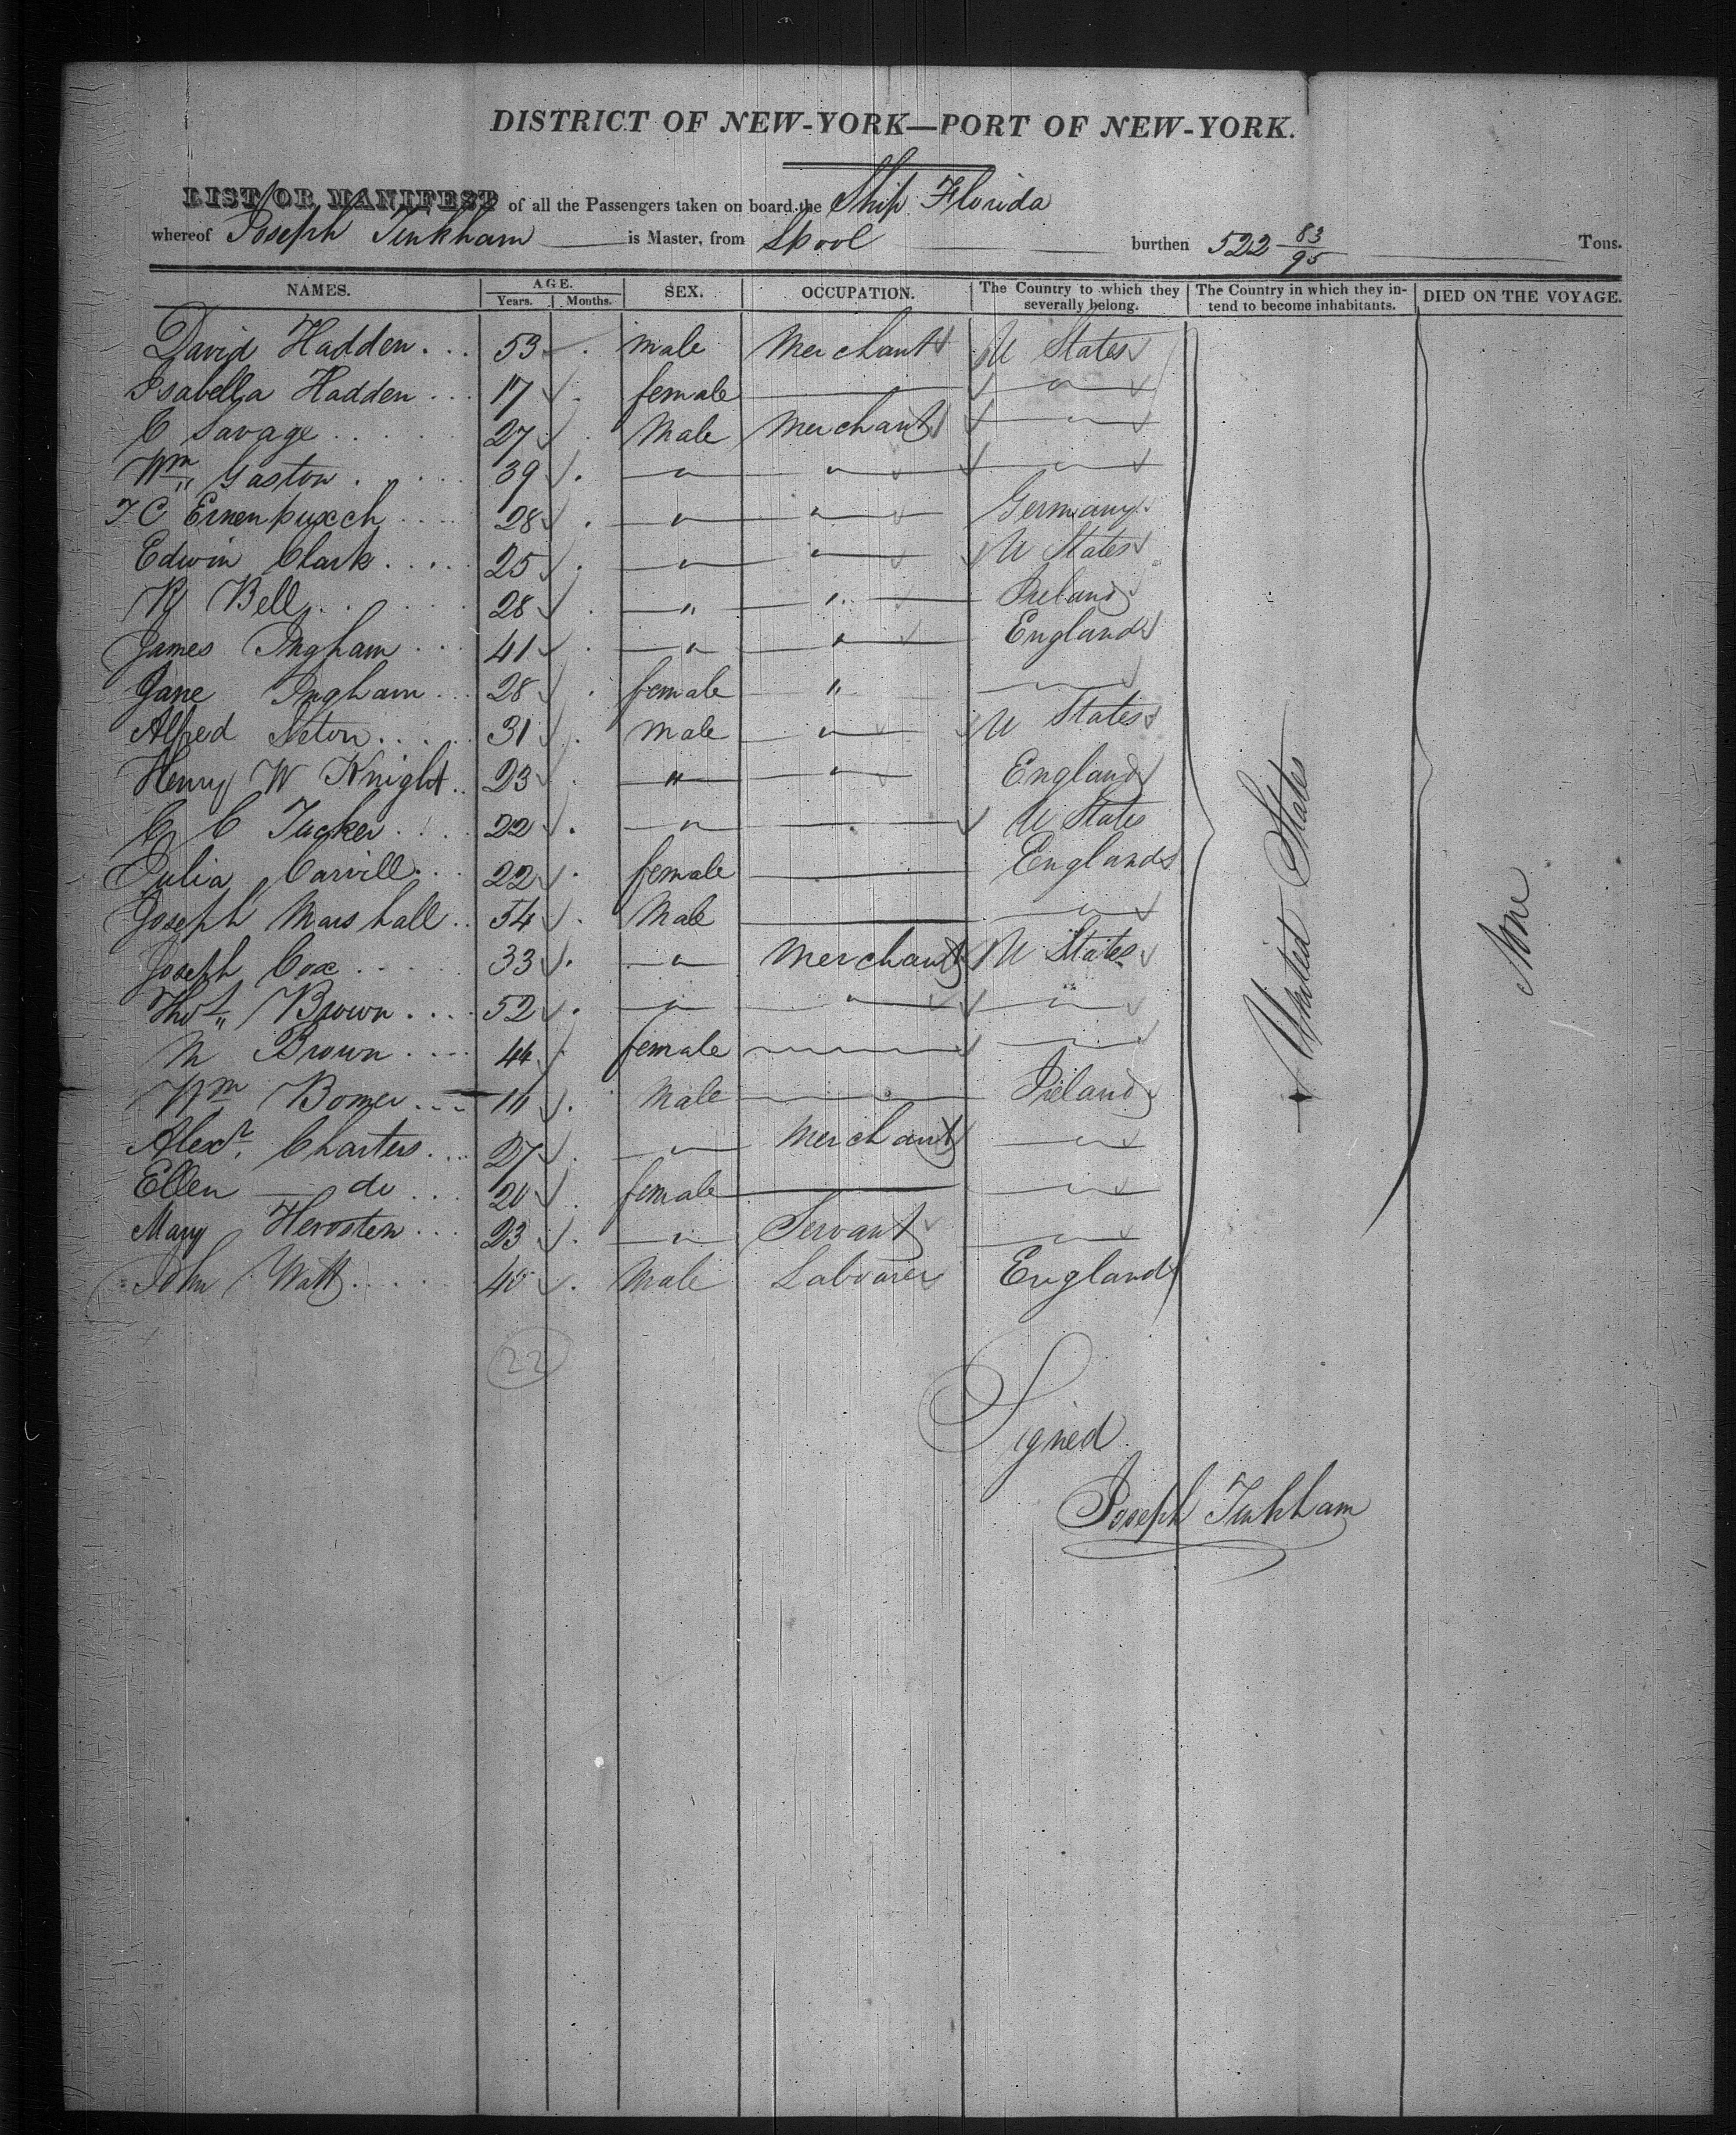 DISTRICT OF NEW-YORK—PORT OF NEW-YORK.
LIST OR MANIFEST of all the Passengers taken on board the Ship Florida
whereof Joseph Tinkham is Master, from Lpool burthen 522 83/95 Tons.
NAMES. AGE. Years. Months. SEX. OCCUPATION. The Country to which they severally belong. The Country in which they intend to become inhabitants. DIED ON THE VOYAGE.
David Hadden 53 male Merchant U States
Isabella Hadden 17 female — "
C Savage 27 Male Merchant "
Wm Gaston 39 " " "
28 " " Germany
Edwin Clark 25 " " U States
Bell 28 " " Ireland
James Ingham 41 " " England
Jane Ingham 28 female " —
Alfred 31 Male " U States
Henry W Knight 23 " " England
C C Tucker 22 " — U States
Julia Carvill 22 female — England
Joseph Marshall 54 Male — "
Joseph Cox 33 " Merchant U States
Thos Brown 52 " " "
M Brown 44 female — "
Wm Male " Ireland
Alexr Charters 27 " Merchant "
Ellen — do 20 female — "
Mary 23 " Servant "
John Watt 45 Male Labourer England
United States
None
22
Signed
Joseph Tinkham